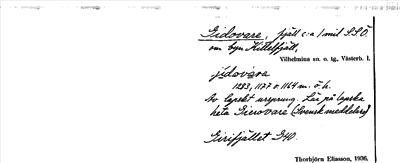 Gidovare, fjäll c:a 1 mil S.S.Ö.
om byn Kittelfjäll,
Vilhelmina sn. o. tg., Västerb. l.
jidovàra
1283, 1177 o. 1164 m. ö. h.
Av lapskt ursprung. Lär på lapska
heta Gierovare (Svensk meddelare)
Girifjället G40.
Thorbjörn Eliasson, 1936.